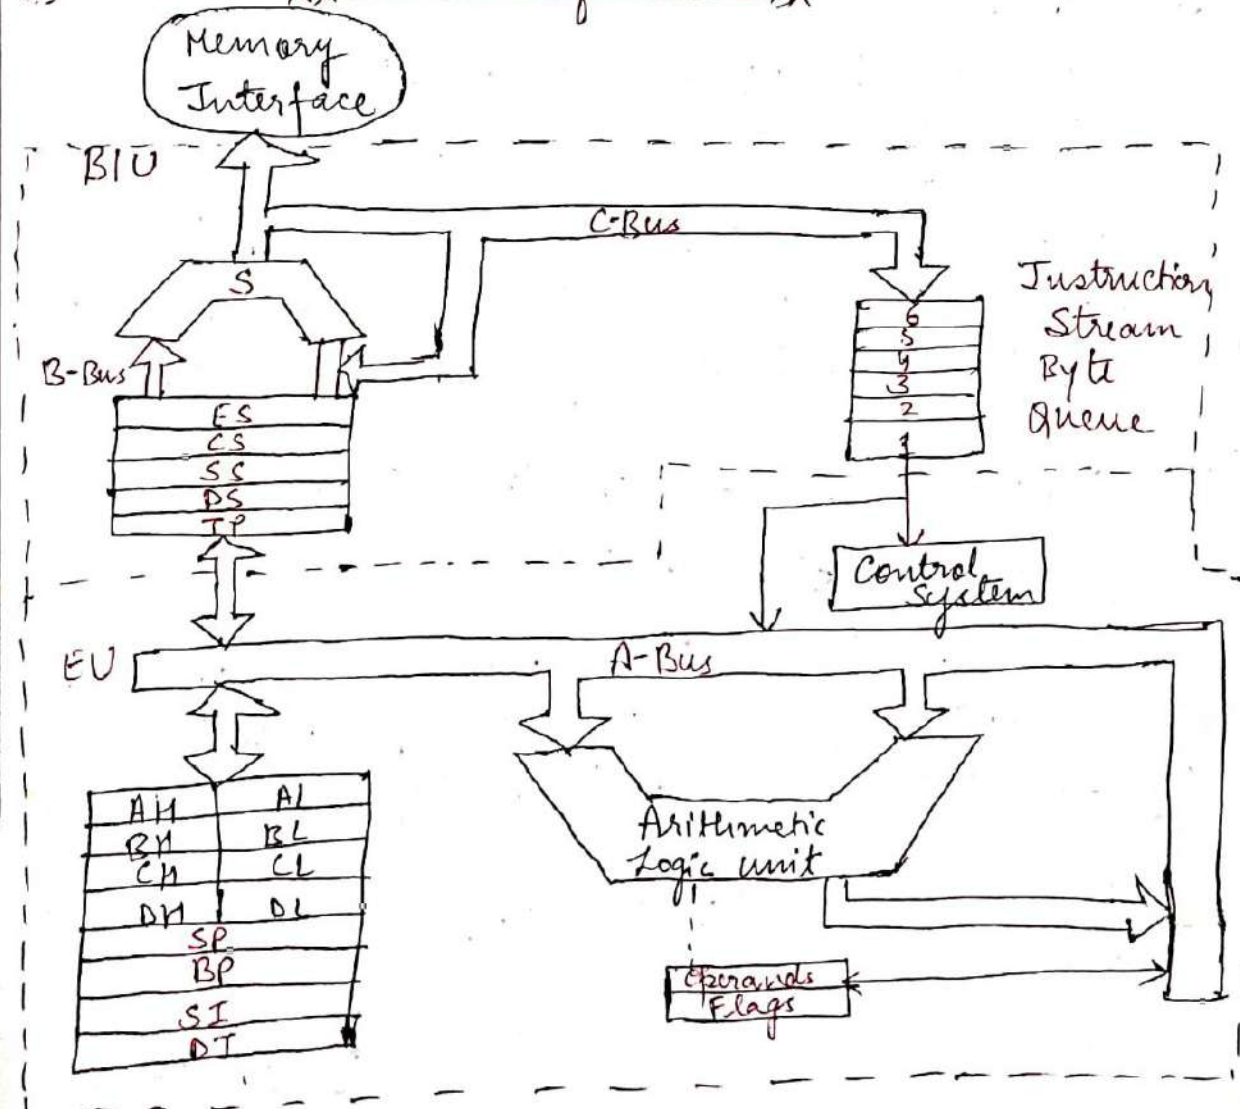 Memory
Interface
BIU
C-Bus
S
B-Bus
ES
CS
SS
DS
IP
6
5
4
3
2
1
Instruction
Stream
Byte
Queue
Control
System
EU
A-Bus
AH AL
BH BL
CH CL
DH DL
SP
BP
SI
DI
Arithmetic
Logic unit
Operands
Flags